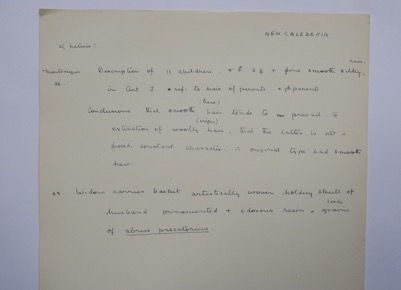 NEW CALEDONIA
Description of 11 children. 5 ♂ + fine smooth silky
hair.
in Art 3. ref: to hair of parents + gparents
Conclusions that smooth hair tends to prevail to
extinction of woolly hair, that the latter is not a
fixed constant character. original type had smooth
hair.
Widow carries basket artistically woven holding skull of
husband ornamented + odorous resin + grains
of abrus precatorius